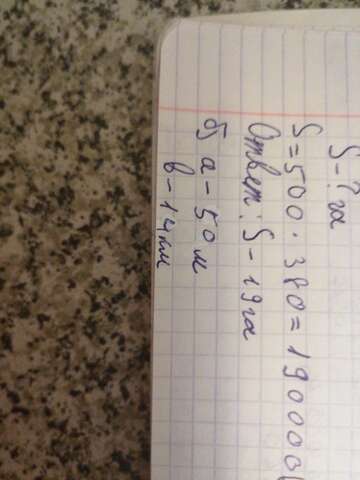 S - ? га
S = 500 · 380 = 190000(
Ответ: S - 19 га
б) а - 50 м
в - 14 км